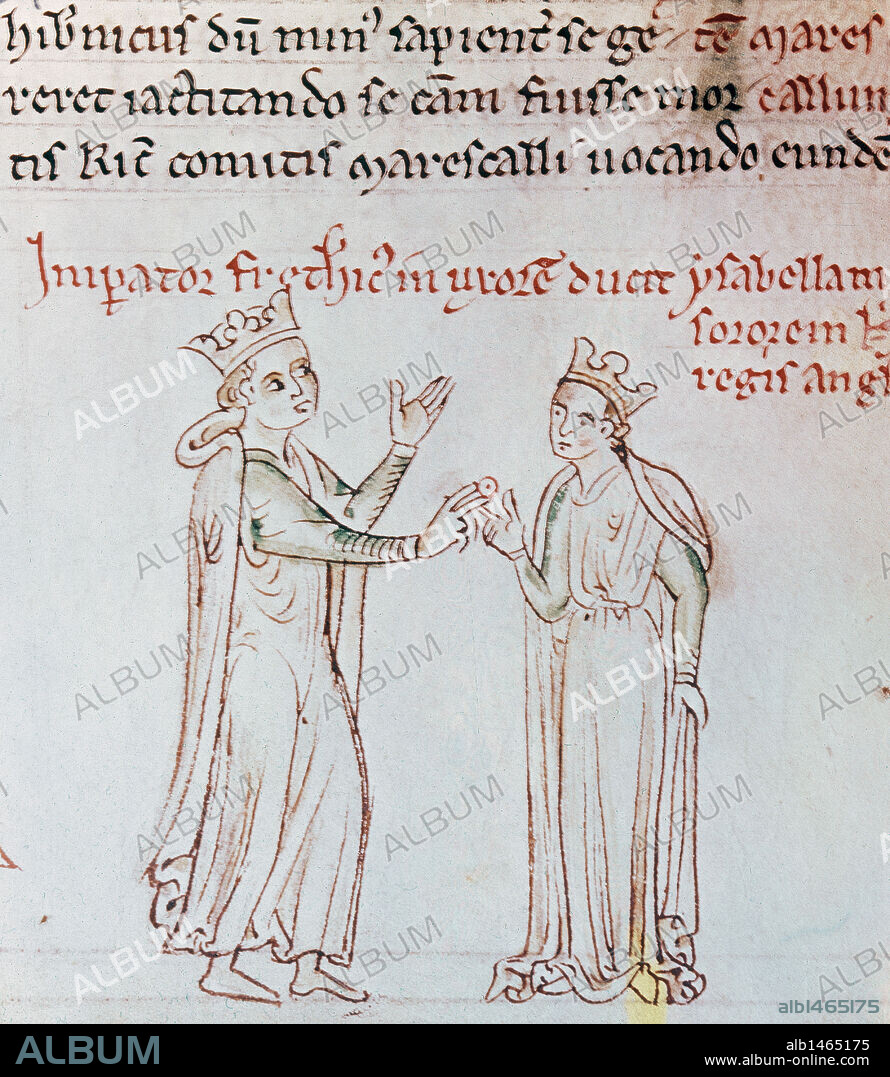 hib'nicus dū min' sapient' se ge tē mares
reret iactitando se cām fuisse mor callum
tis Ric̄ comitis marescalli uocando eundē
Imperator freth'ic' in uxorē ducit ysabellam
sororem
regis angl
ALBUM
alb1465175
ALBUM
alb1465175
www.album-online.com